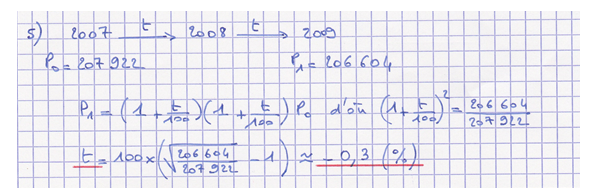 5) 2007 —t→ 2008 —t→ 2009
P₀ = 207 922 P₁ = 206 604
P₁ = (1 + t/100)(1 + t/100) P₀ d'où (1 + t/100)² = 206 604/207 922
t = 100×(√(206 604/207 922) − 1) ≈ − 0,3 (%)